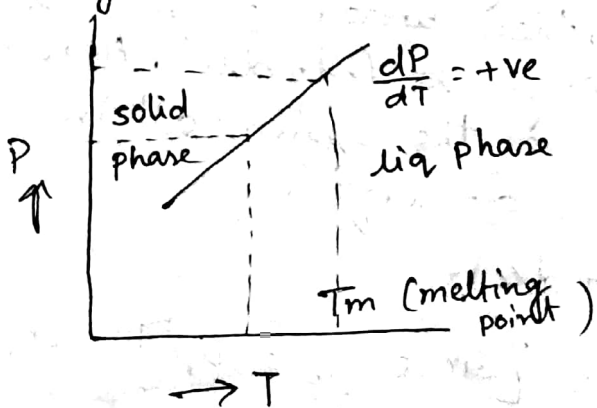 dP/dT = +ve
solid
phase
liq phase
P
↑
Tm (melting
point)
→ T